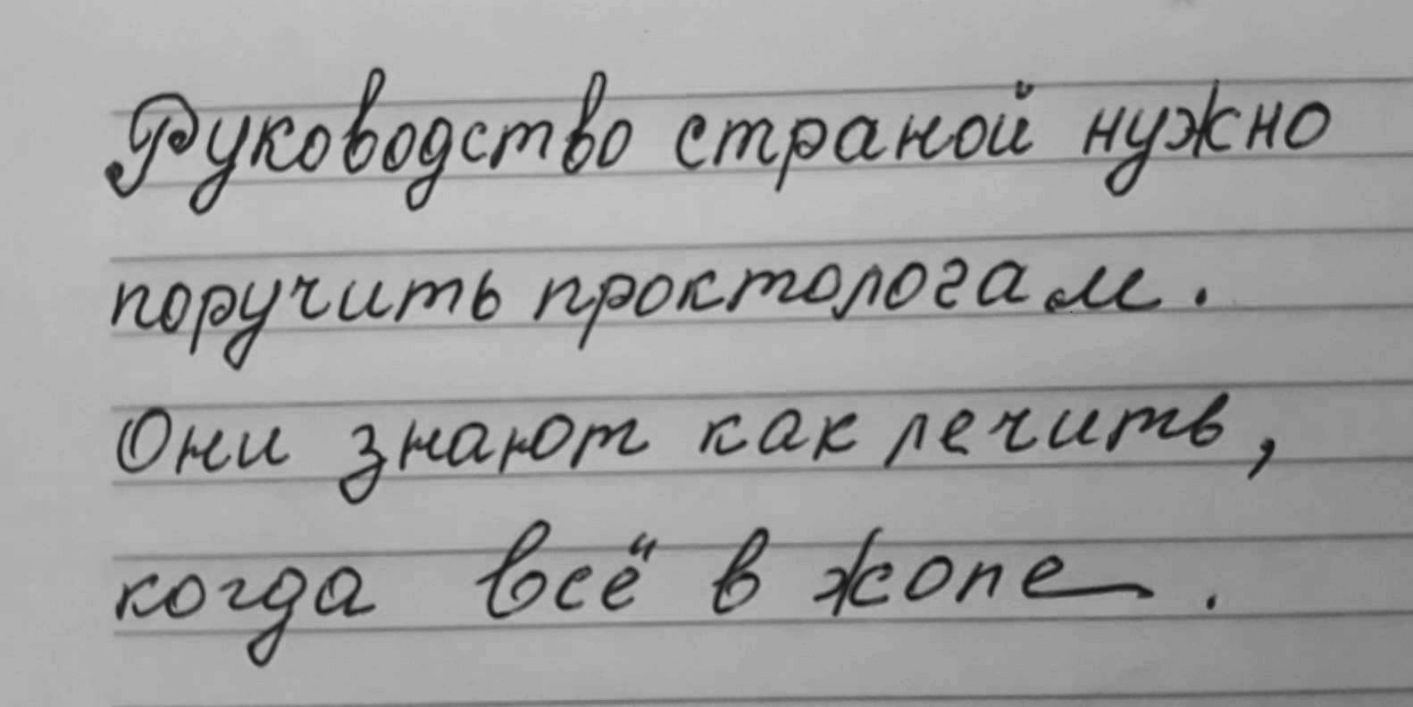 Руководство страной нужно
поручить проктологам.
Они знают как лечить,
когда всё в жопе.